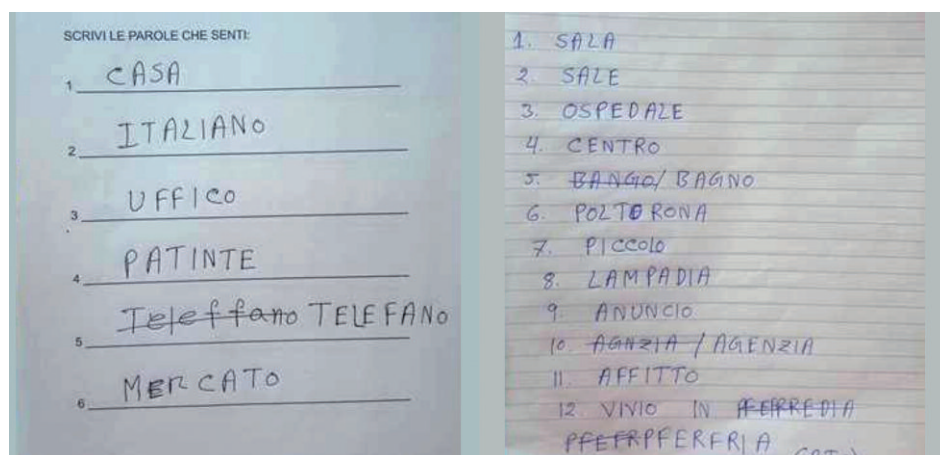 SCRIVI LE PAROLE CHE SENTI:
1 CASA
2 ITALIANO
3 UFFICO
4 PATINTE
5 Teleffano TELEFANO
6 MERCATO
1. SALA
2. SALE
3. OSPEDALE
4. CENTRO
5. BANGO/ BAGNO
6. POLTORONA
7. PICCOLO
8. LAMPADIA
9. ANUNCIO
10. AGNZIA / AGENZIA
11. AFFITTO
12 VIVIO IN